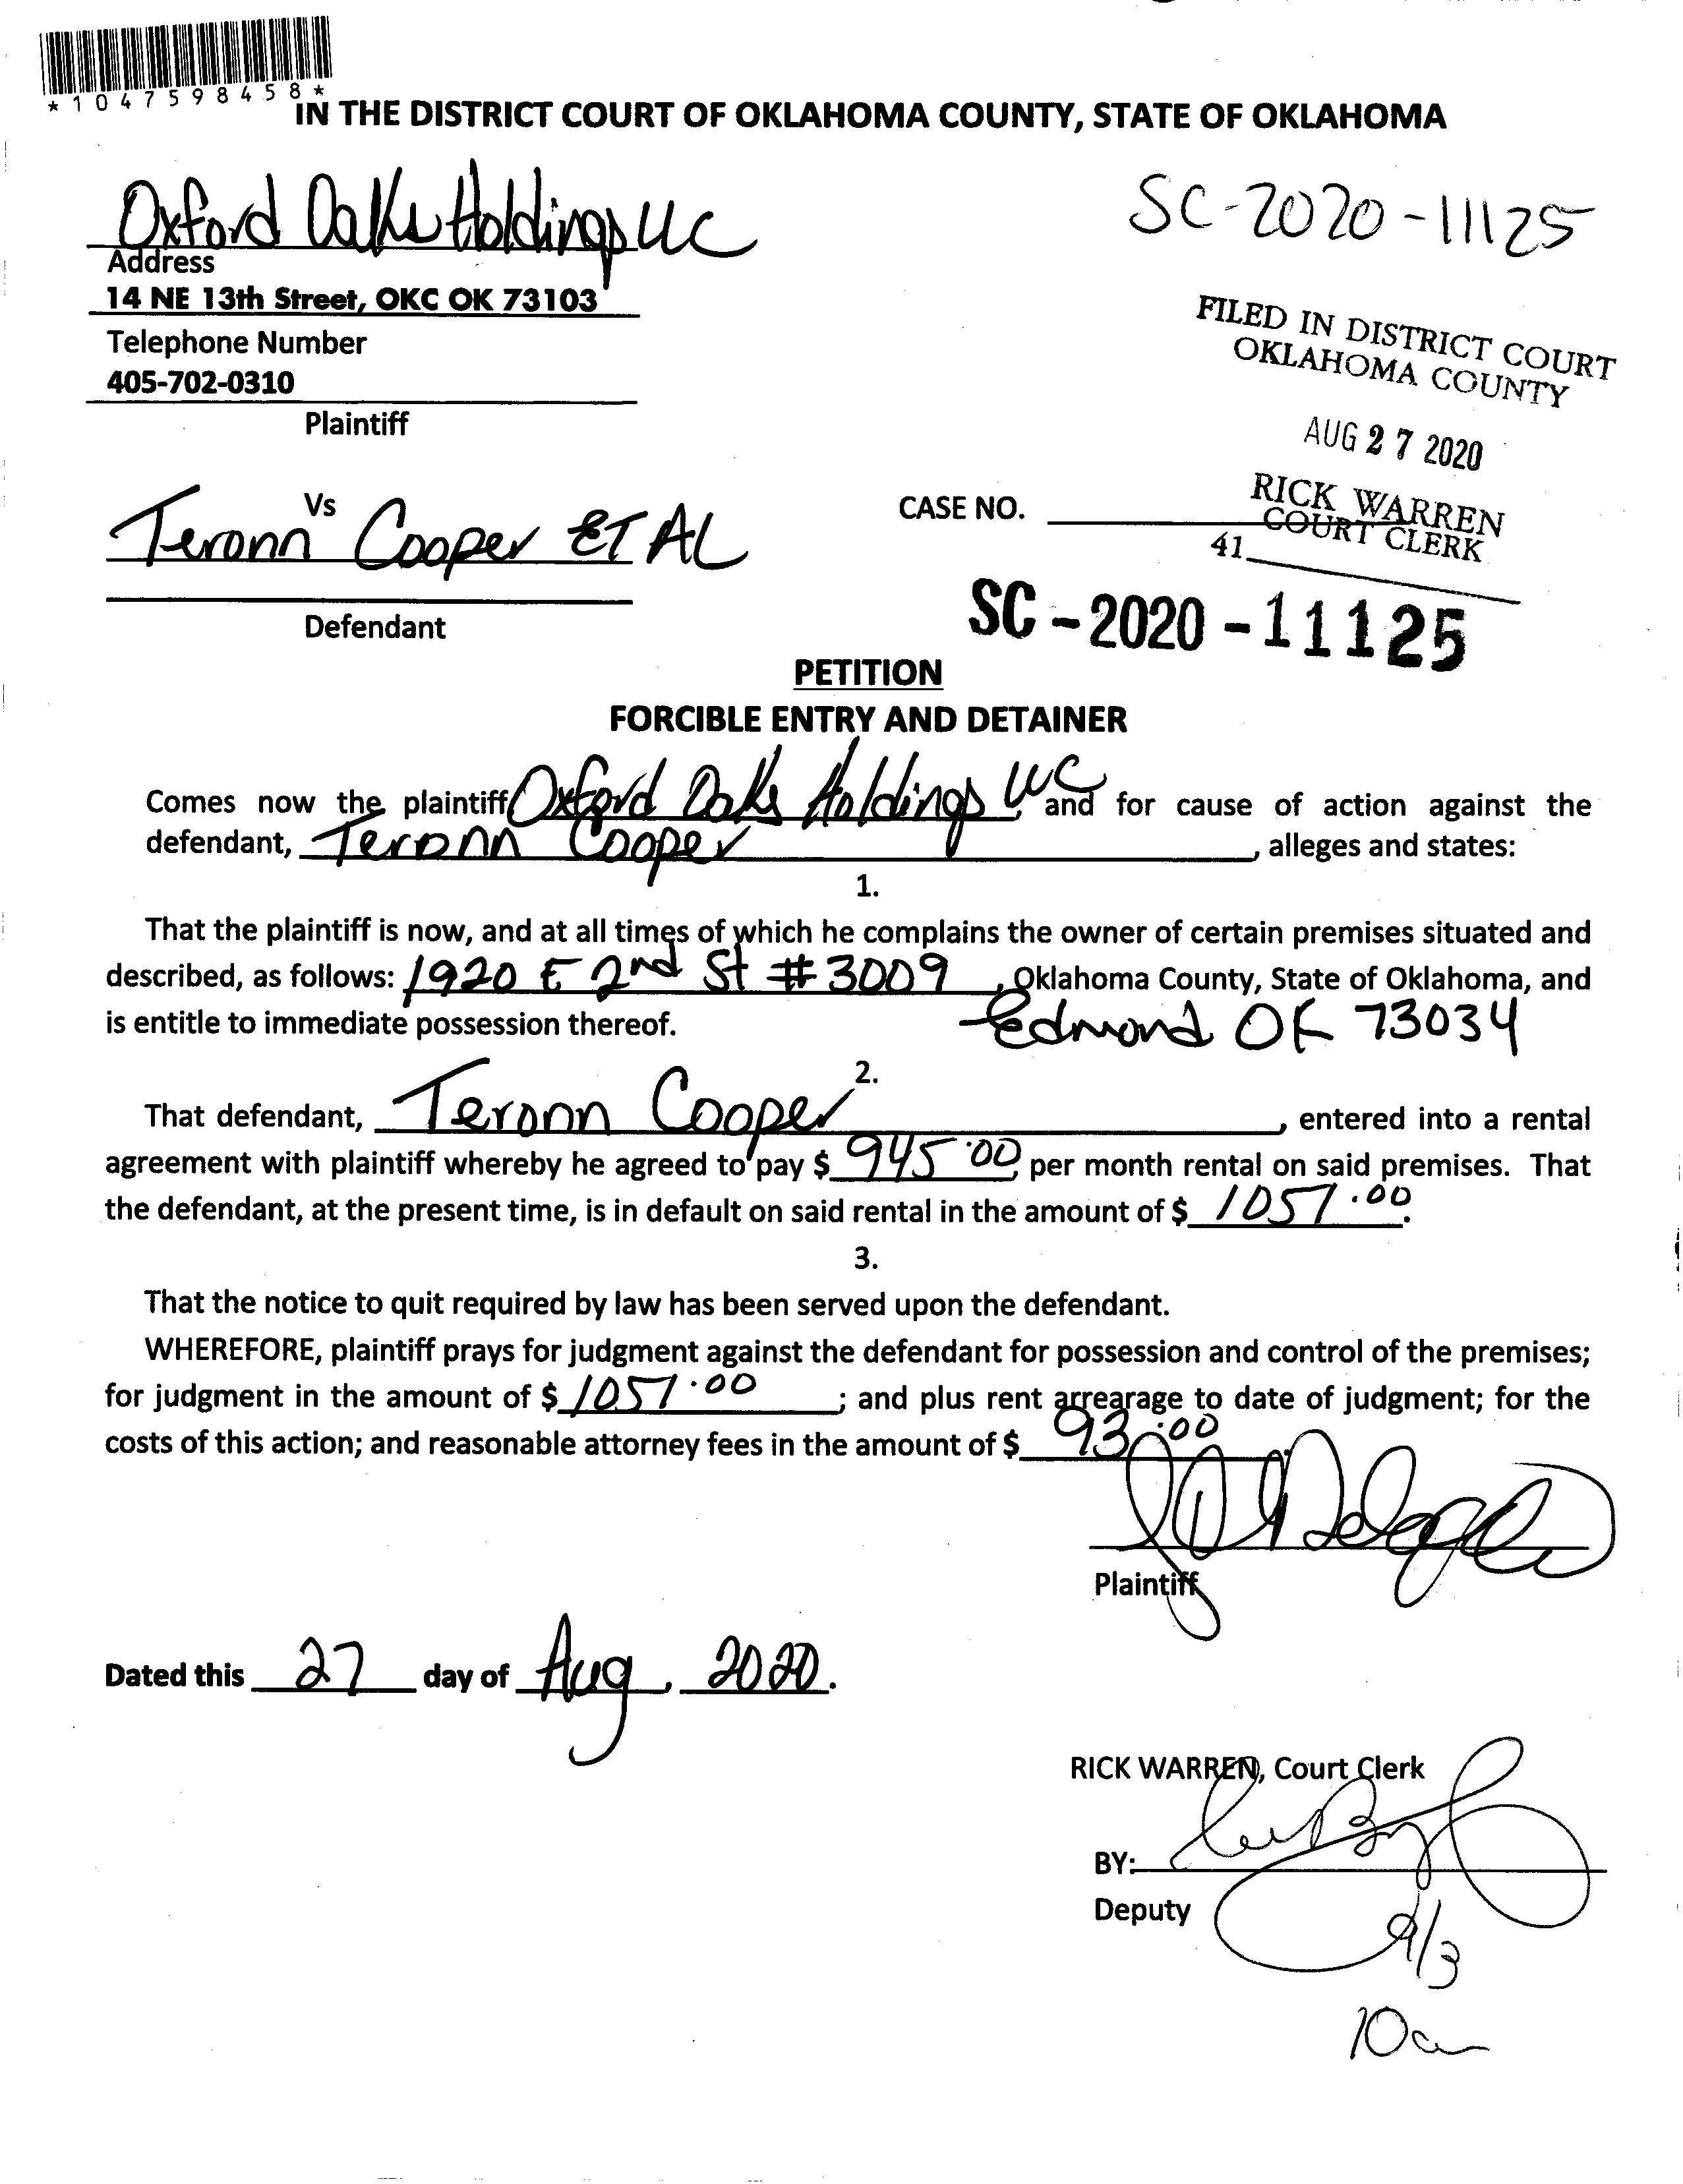 *1047598458*
IN THE DISTRICT COURT OF OKLAHOMA COUNTY, STATE OF OKLAHOMA
Oxford Oaks Holdings LLC
SC-2020-11125
Address
14 NE 13th Street, OKC OK 73103
Telephone Number
405-702-0310
Plaintiff
FILED IN DISTRICT COURT
OKLAHOMA COUNTY
AUG 27 2020
RICK WARREN
COURT CLERK
41
Vs
Teronn Cooper ET AL
Defendant
CASE NO.
SC-2020-11125
PETITION
FORCIBLE ENTRY AND DETAINER
Comes now the plaintiff Oxford Oaks Holdings LLC, and for cause of action against the
defendant, Teronn Cooper, alleges and states:
1.
That the plaintiff is now, and at all times of which he complains the owner of certain premises situated and
described, as follows: 1920 E 2nd St #3009, Oklahoma County, State of Oklahoma, and
is entitle to immediate possession thereof. Edmond OK 73034
2.
That defendant, Teronn Cooper, entered into a rental
agreement with plaintiff whereby he agreed to pay $ 945.00, per month rental on said premises. That
the defendant, at the present time, is in default on said rental in the amount of $ 1057.00.
3.
That the notice to quit required by law has been served upon the defendant.
WHEREFORE, plaintiff prays for judgment against the defendant for possession and control of the premises;
for judgment in the amount of $ 1057.00; and plus rent arrearage to date of judgment; for the
costs of this action; and reasonable attorney fees in the amount of $ 93.00.
Plaintiff
Dated this 27 day of Aug, 2020.
RICK WARREN, Court Clerk
BY:
Deputy
9/3
10am